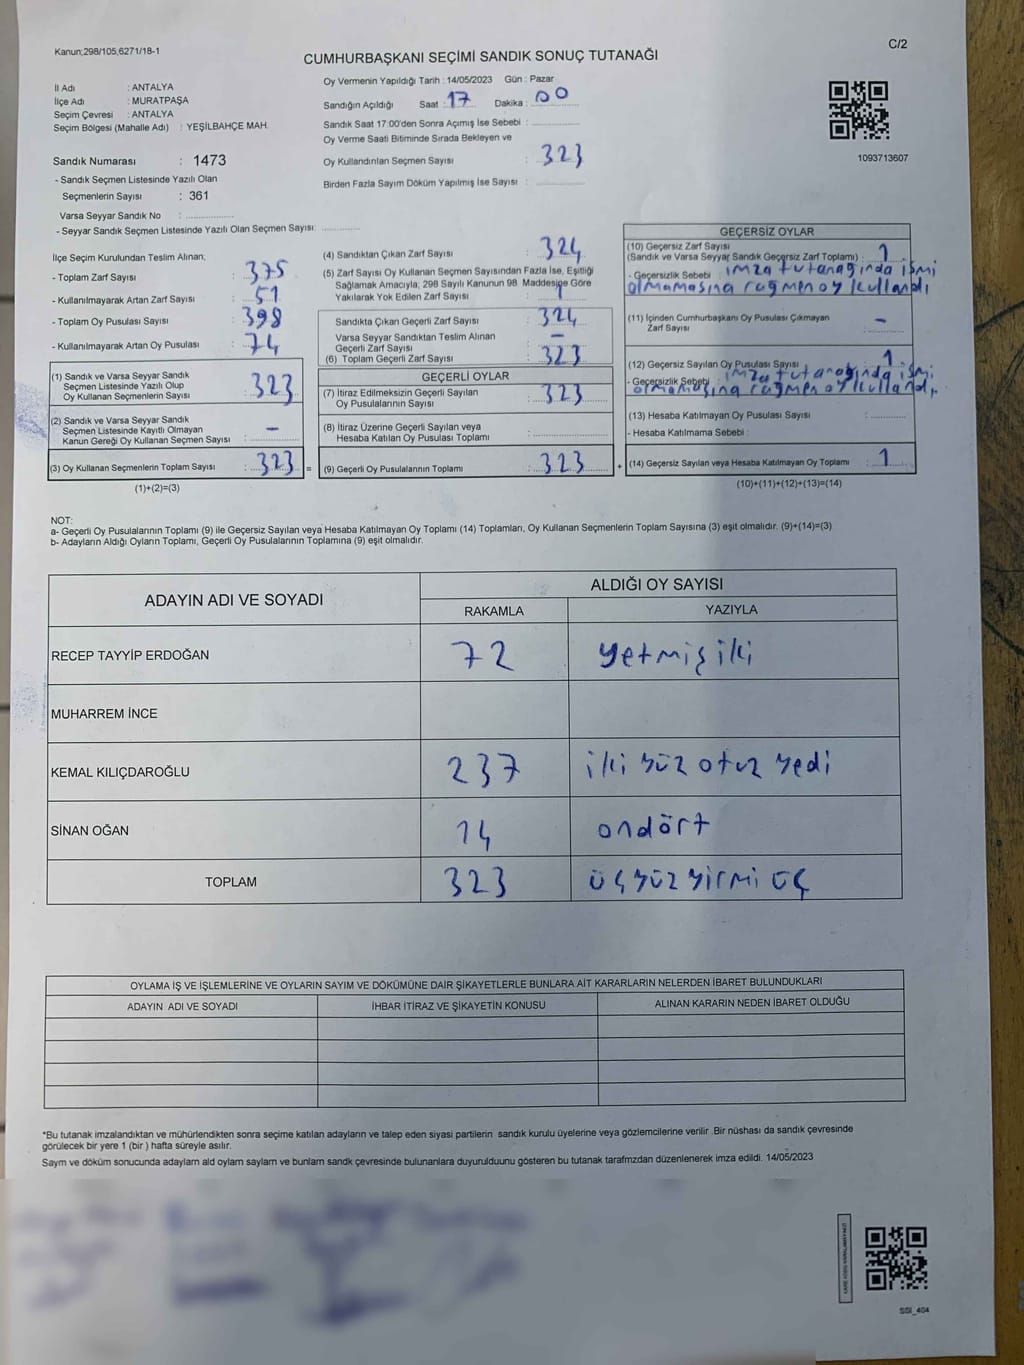 Kanun;298/105,6271/18-1
C/2
CUMHURBAŞKANI SEÇİMİ SANDIK SONUÇ TUTANAĞI
İl Adı : ANTALYA
İlçe Adı : MURATPAŞA
Seçim Çevresi : ANTALYA
Seçim Bölgesi (Mahalle Adı) : YEŞİLBAHÇE MAH.
Sandık Numarası : 1473
- Sandık Seçmen Listesinde Yazılı Olan
Seçmenlerin Sayısı : 361
Varsa Seyyar Sandık No :
- Seyyar Sandık Seçmen Listesinde Yazılı Olan Seçmen Sayısı:
Oy Vermenin Yapıldığı Tarih : 14/05/2023 Gün : Pazar
Sandığın Açıldığı Saat : 17 Dakika : 00
Sandık Saat 17:00'den Sonra Açımış İse Sebebi :
Oy Verme Saati Bitiminde Sırada Bekleyen ve
Oy Kullandırılan Seçmen Sayısı : 323
Birden Fazla Sayım Döküm Yapılmış İse Sayısı :
1093713607
İlçe Seçim Kurulundan Teslim Alınan;
- Toplam Zarf Sayısı : 375
- Kullanılmayarak Artan Zarf Sayısı : 51
- Toplam Oy Pusulası Sayısı : 398
- Kullanılmayarak Artan Oy Pusulası : 74
(1) Sandık ve Varsa Seyyar Sandık
Seçmen Listesinde Yazılı Olup
Oy Kullanan Seçmenlerin Sayısı : 323
(2) Sandık ve Varsa Seyyar Sandık
Seçmen Listesinde Kayıtlı Olmayan
Kanun Gereği Oy Kullanan Seçmen Sayısı : –
(3) Oy Kullanan Seçmenlerin Toplam Sayısı : 323 =
(1)+(2)=(3)
(4) Sandıktan Çıkan Zarf Sayısı : 324
(5) Zarf Sayısı Oy Kullanan Seçmen Sayısından Fazla İse, Eşitliği
Sağlamak Amacıyla, 298 Sayılı Kanunun 98. Maddesine Göre
Yakılarak Yok Edilen Zarf Sayısı : 1
Sandıkta Çıkan Geçerli Zarf Sayısı : 324
Varsa Seyyar Sandıktan Teslim Alınan
Geçerli Zarf Sayısı : –
(6) Toplam Geçerli Zarf Sayısı : 323
GEÇERLİ OYLAR
(7) İtiraz Edilmeksizin Geçerli Sayılan
Oy Pusulalarının Sayısı : 323
(8) İtiraz Üzerine Geçerli Sayılan veya
Hesaba Katılan Oy Pusulası Toplamı :
(9) Geçerli Oy Pusulalarının Toplamı : 323 +
GEÇERSİZ OYLAR
(10) Geçersiz Zarf Sayısı
(Sandık ve Varsa Seyyar Sandık Geçersiz Zarf Toplamı) : 1
- Geçersizlik Sebebi : imza tutanağında ismi
olmamasına rağmen oy kullandı
(11) İçinden Cumhurbaşkanı Oy Pusulası Çıkmayan
Zarf Sayısı : –
(12) Geçersiz Sayılan Oy Pusulası Sayısı : 1
- Geçersizlik Sebebi : imza tutanağında ismi
olmamasına rağmen oy kullandı.
(13) Hesaba Katılmayan Oy Pusulası Sayısı :
- Hesaba Katılmama Sebebi :
(14) Geçersiz Sayılan veya Hesaba Katılmayan Oy Toplamı : 1
(10)+(11)+(12)+(13)=(14)
NOT:
a- Geçerli Oy Pusulalarının Toplamı (9) ile Geçersiz Sayılan veya Hesaba Katılmayan Oy Toplamı (14) Toplamları, Oy Kullanan Seçmenlerin Toplam Sayısına (3) eşit olmalıdır. (9)+(14)=(3)
b- Adayların Aldığı Oyların Toplamı, Geçerli Oy Pusulalarının Toplamına (9) eşit olmalıdır.
ADAYIN ADI VE SOYADI ALDIĞI OY SAYISI
RAKAMLA YAZIYLA
RECEP TAYYİP ERDOĞAN 72 yetmiş iki
MUHARREM İNCE
KEMAL KILIÇDAROĞLU 237 iki yüz otuz yedi
SİNAN OĞAN 14 ondört
TOPLAM 323 üç yüz yirmi üç
OYLAMA İŞ VE İŞLEMLERİNE VE OYLARIN SAYIM VE DÖKÜMÜNE DAİR ŞİKAYETLERLE BUNLARA AİT KARARLARIN NELERDEN İBARET BULUNDUKLARI
ADAYIN ADI VE SOYADI İHBAR İTİRAZ VE ŞİKAYETİN KONUSU ALINAN KARARIN NEDEN İBARET OLDUĞU
*Bu tutanak imzalandıktan ve mühürlendikten sonra seçime katılan adayların ve talep eden siyasi partilerin sandık kurulu üyelerine veya gözlemcilerine verilir .Bir nüshası da sandık çevresinde
görülecek bir yere 1 (bir ) hafta süreyle asılır.
Saym ve döküm sonucunda adaylarn ald oylarn saylarn ve bunlarn sandk çevresinde bulunanlara duyurulduunu gösteren bu tutanak tarafmzdan düzenlenerek imza edildi. 14/05/2023
SSI_404